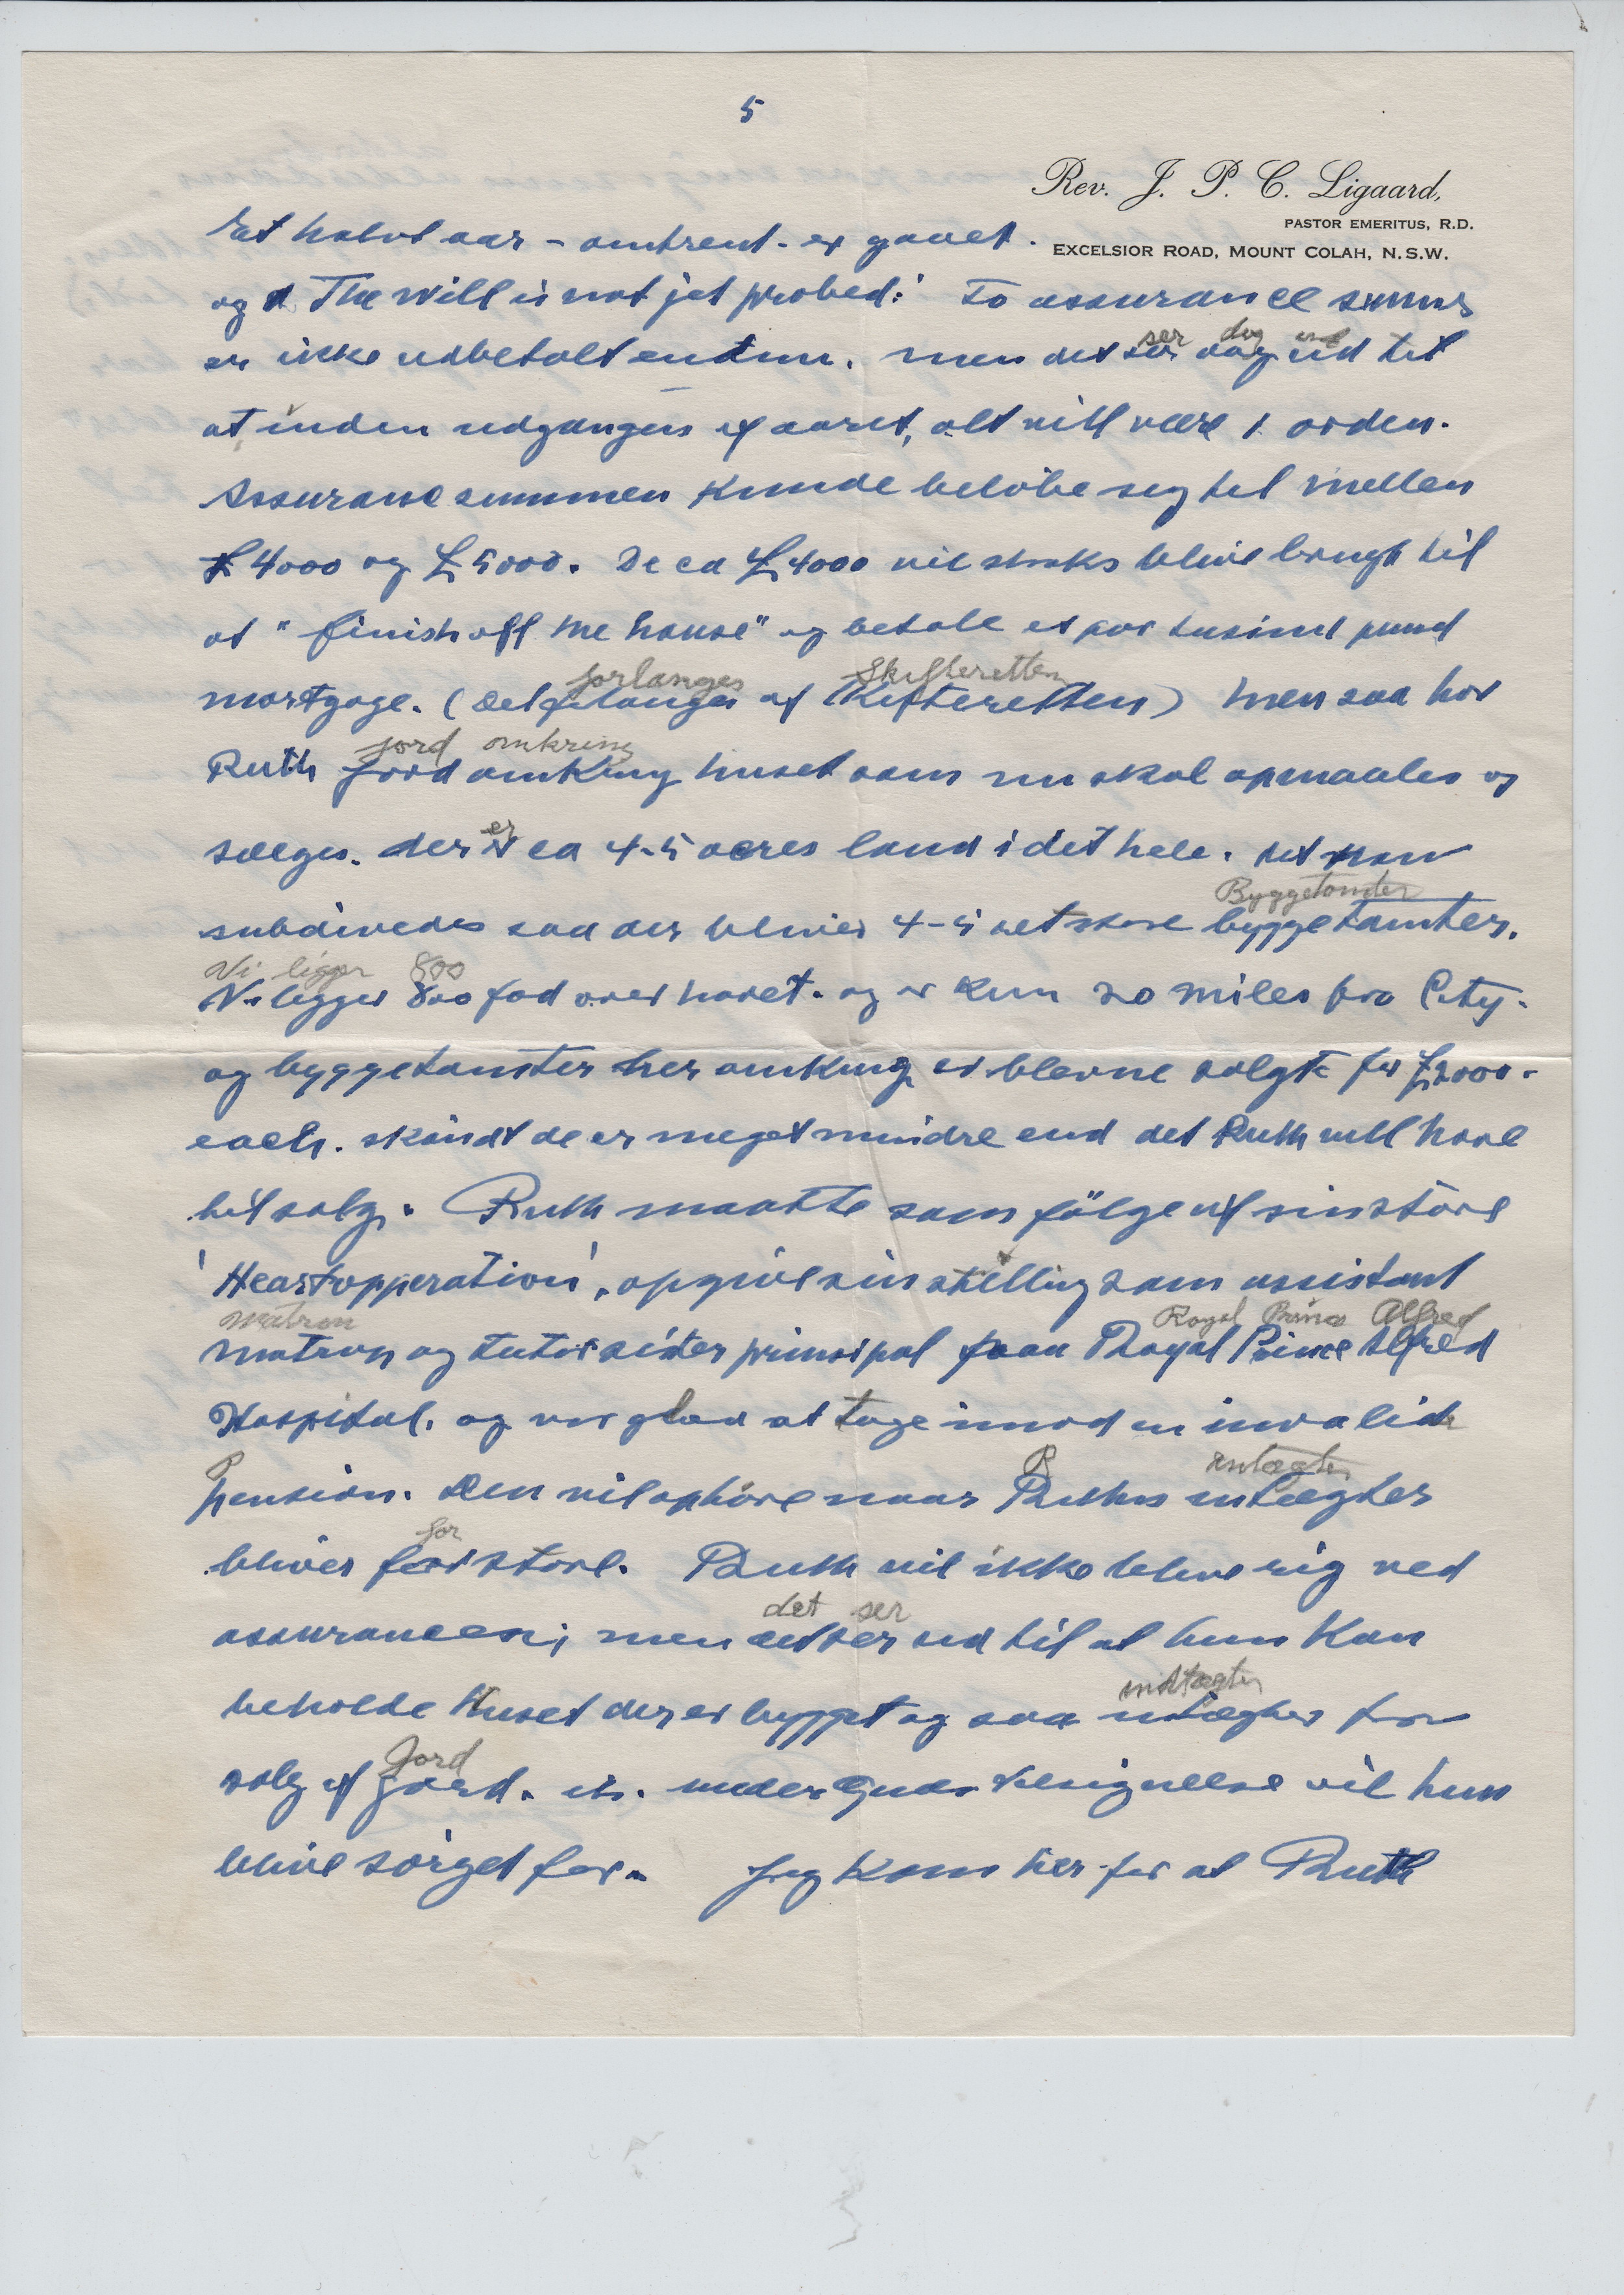 5
Rev. J. P. C. Ligaard,
PASTOR EMERITUS, R.D.
EXCELSIOR ROAD, MOUNT COLAH, N.S.W.
Et halvt aar - omtrent - er gaaet.
og The will is not jet probed.' To assurance summer
ser dog ud
er ikke udbetalt endnu. men det ser dog ud til
at inden udgangen af aaret, alt vill være i orden.
Assurance summen kunde belöbe seg til mellen
£4000 og £5000. De ca £4000 vil straks blive brugt til
at "finish off the house" og betale et par tusind pund
forlanges Skifteretten
mortgage. (Det forlanges af Skifteretten) Men saa har
jord omkring
Ruth jord omkring huset som nu skal opmaales og
er
sælges. der er ca 4-5 acres land i det hele. det kan
Byggetomter
subdivedes saa der bliver 4-5 ret store byggetomter.
Vi ligger 800
Vi ligger 800 fod over havet. og er kun 20 miles fra City.
og byggetomter her omkring er blevne solgt for £2000.
each. sköndt de er meget mindre end det Ruth vill have
til salg. Ruth maatte som fölge af sin störe
'Heartopperation', opgive sin stilling som assistant
matron Royal Prince Alfred
matron og tutor sister principal paa Royal Prince Alfred
Hospital. og var glad at tage imod en invalid
P R intægter
pension. Den vil ophöre naar Ruths intægter
for
bliver for store. Ruth vil ikke blive rig ved
det ser
assurancen; men det ser ud til at hun kan
indtægter
beholde Huset der er bygget og saa intægter fra
Jord
salg af jord. under Guds Velsignelse vil hun
blive sörget for. Jeg kom her for at Ruth